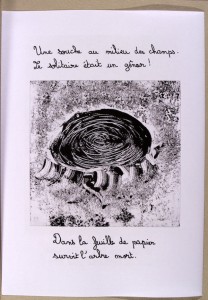 Une souche au milieu des champs.
Le solitaire était un géneur !
Dans la feuille de papier
survit l'arbre mort.